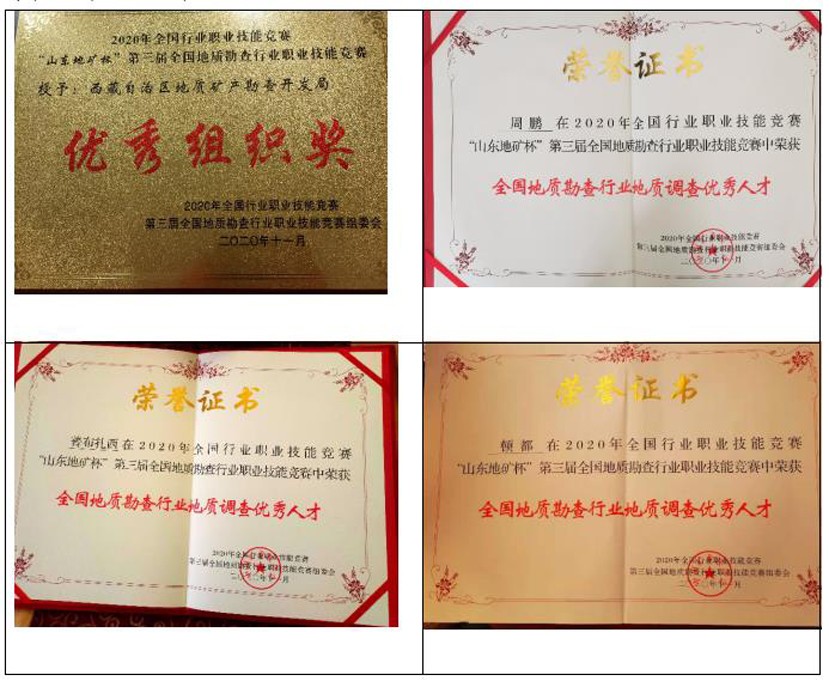 2020年全国行业职业技能竞赛
“山东地矿杯”第三届全国地质勘查行业职业技能竞赛
授予：西藏自治区地质矿产勘查开发局
优秀组织奖
2020年全国行业职业技能竞赛
第三届全国地质勘查行业职业技能竞赛组委会
二〇二〇年十一月
荣誉证书
周鹏 在2020年全国行业职业技能竞赛
“山东地矿杯”第三届全国地质勘查行业职业技能竞赛中荣获
全国地质勘查行业地质调查优秀人才
2020年全国行业职业技能竞赛
第三届全国地质勘查行业职业技能竞赛组委会
二〇二〇年十一月
荣誉证书
在2020年全国行业职业技能竞赛
“山东地矿杯”第三届全国地质勘查行业职业技能竞赛中荣获
全国地质勘查行业地质调查优秀人才
2020年全国行业职业技能竞赛
第三届全国地质勘查行业职业技能竞赛组委会
二〇二〇年十一月
荣誉证书
顿都 在2020年全国行业职业技能竞赛
“山东地矿杯”第三届全国地质勘查行业职业技能竞赛中荣获
全国地质勘查行业地质调查优秀人才
2020年全国行业职业技能竞赛
第三届全国地质勘查行业职业技能竞赛组委会
二〇二〇年十一月